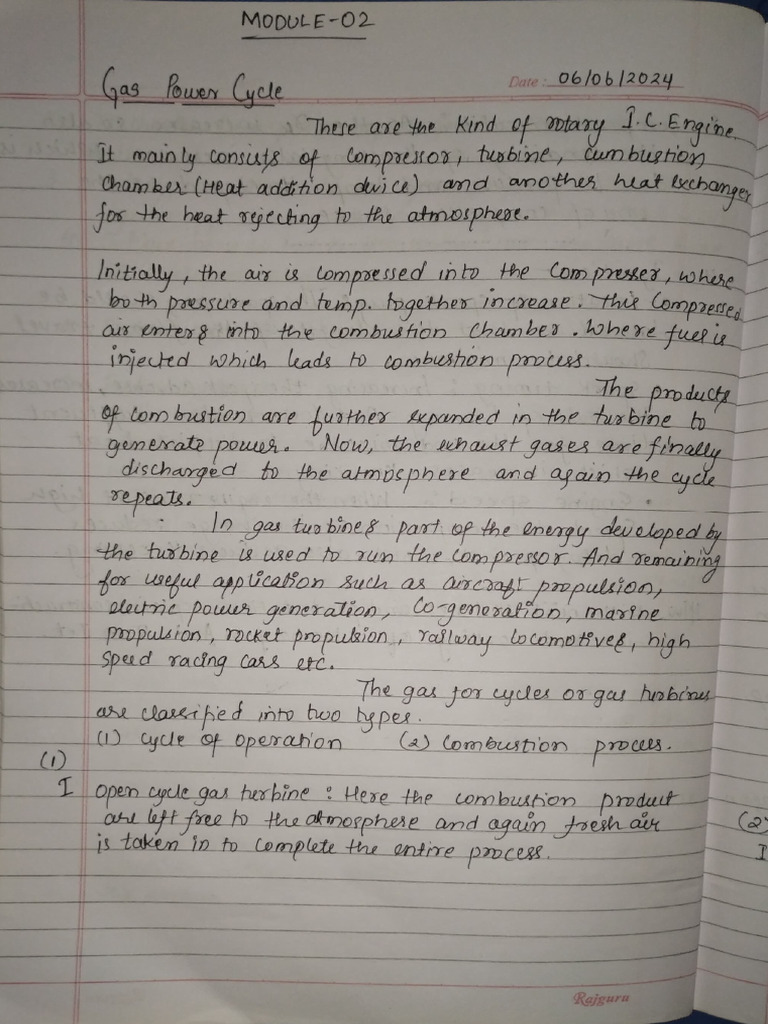 MODULE-02
Date: 06/06/2024
Gas Power Cycle
These are the kind of rotary I.C. Engine
It mainly consists of compressor, turbine, cumbustion
chamber (Heat addition dvice) and another heat exchanger
for the heat rejecting to the atmosphere.
Initially, the air is compressed into the compresser, where
both pressure and temp. together increase. This compressed
air enters into the combustion chamber. Where fuel is
injected which leads to combustion process.
The products
of combustion are further expanded in the turbine to
generate power. Now, the exhaust gases are finally
discharged to the atmosphere and again the cycle
repeats.
In gas turbines part of the energy developed by
the turbine is used to run the compressor. And remaining
for useful application such as aircraft propulsion,
electric power generation, Co-generation, marine
propulsion, rocket propulsion, railway locomotives, high
speed racing cars etc.
The gas for cycles or gas turbines
are classified into two types.
(1) cycle of operation (2) combustion process.
(1)
I open cycle gas turbine : Here the combustion product
are left free to the atmosphere and again fresh air
is taken in to complete the entire process.
(2)
I
Rajguru